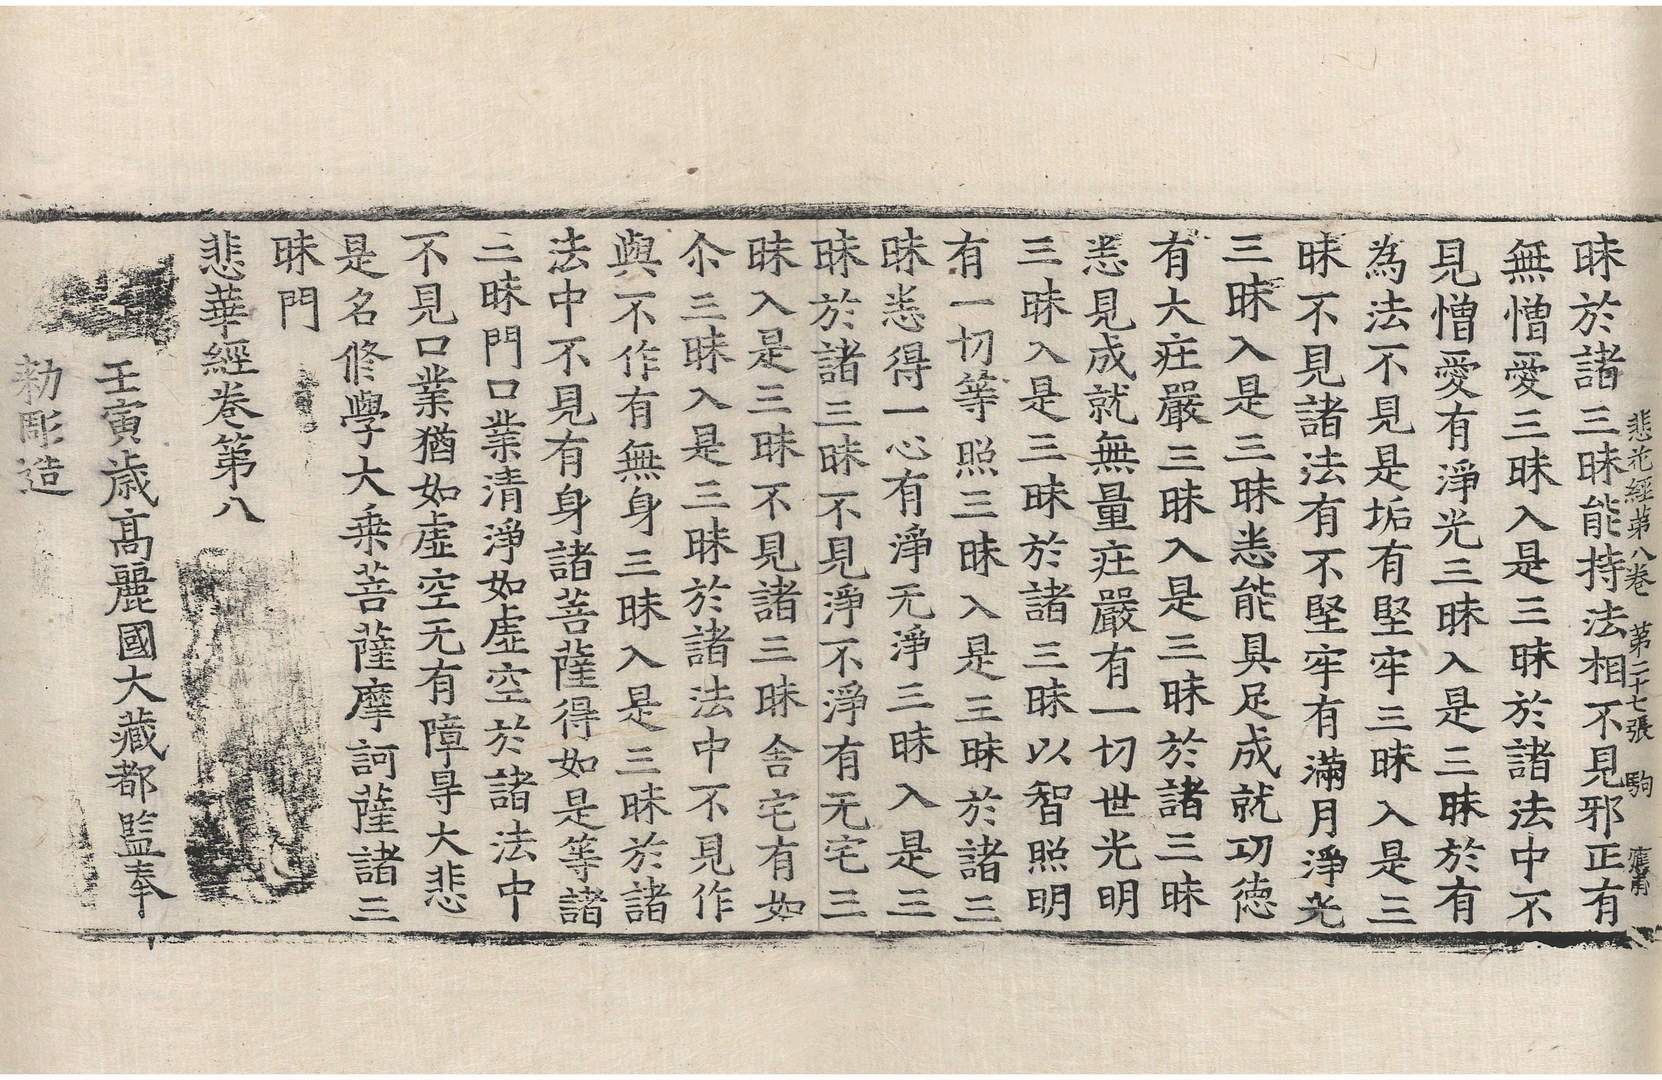 悲花經第八卷 第二十七張 駒
昧於諸三昧能持法相不見邪正有
無憎愛三昧入是三昧於諸法中不
見憎愛有淨光三昧入是三昧於有
為法不見是垢有堅牢三昧入是三
昧不見諸法有不堅牢有滿月淨光
三昧入是三昧悉能具足成就功德
有大庄嚴三昧入是三昧於諸三昧
悉見成就無量庄嚴有一切世光明
三昧入是三昧於諸三昧以智照明
有一切等照三昧入是三昧於諸三
昧悉得一心有淨无淨三昧入是三
昧於諸三昧不見淨不淨有无宅三
昧入是三昧不見諸三昧舍宅有如
尒三昧入是三昧於諸法中不見作
與不作有無身三昧入是三昧於諸
法中不見有身諸菩薩得如是等諸
三昧門口業清淨如虛空於諸法中
不見口業猶如虛空无有障㝵大悲
是名修學大乘菩薩摩訶薩諸三
昧門
悲華經卷第八
壬寅歲高麗國大藏都監奉
勑彫造